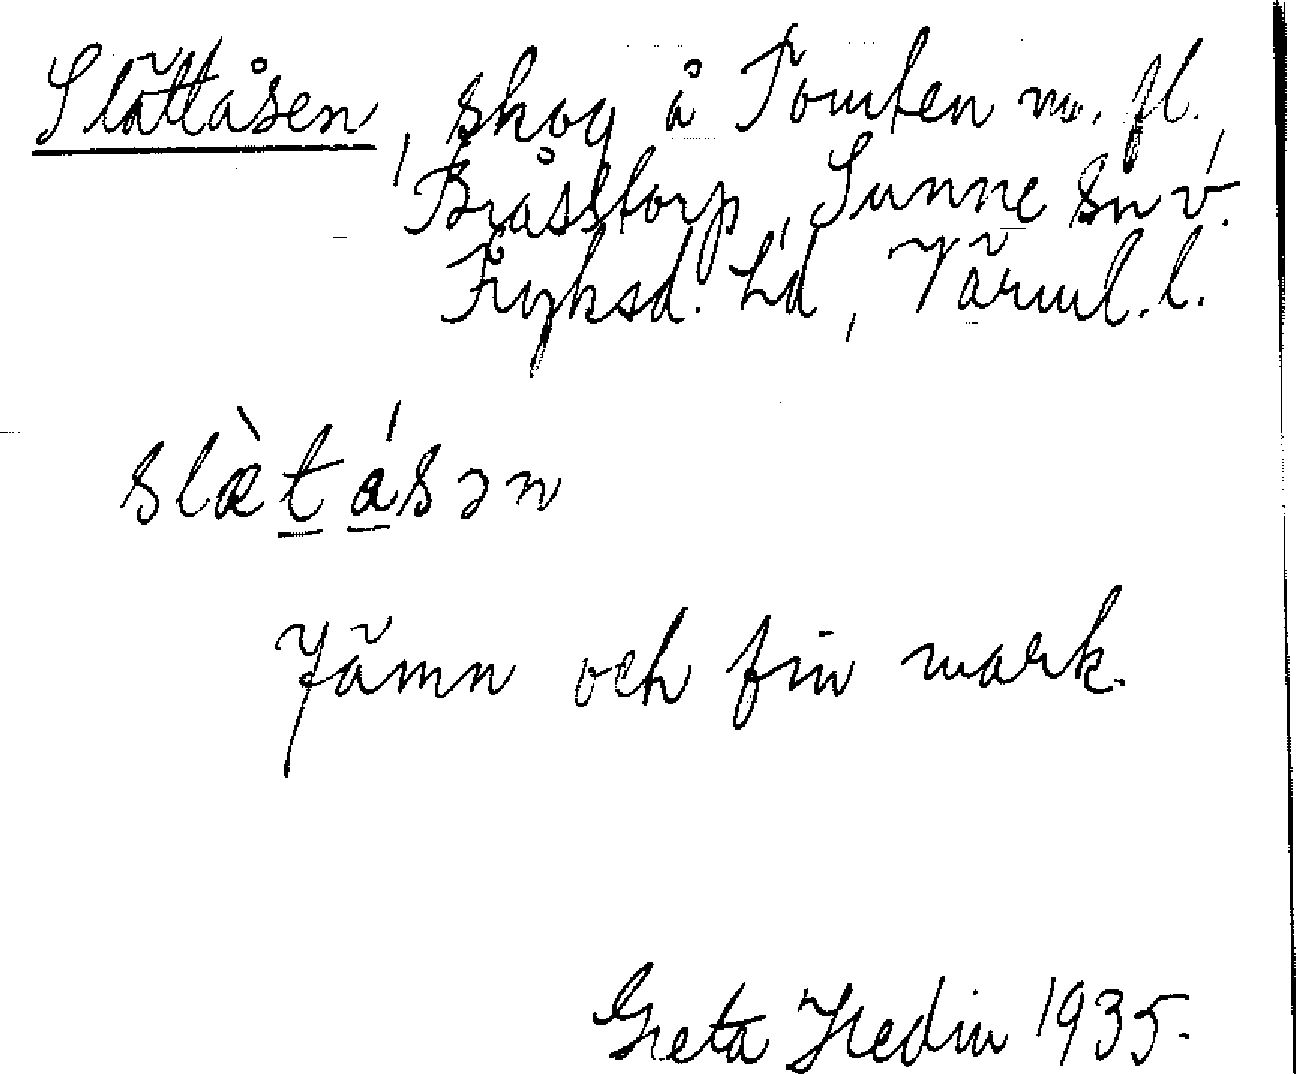 Slättåsen, skog å Tomten m. fl.,
Bråstorp, Sunne sn v.
Fryksd. hd, Värml. l.
slæ̀tásən
Jämn och fin mark.
Greta Hedin 1935.